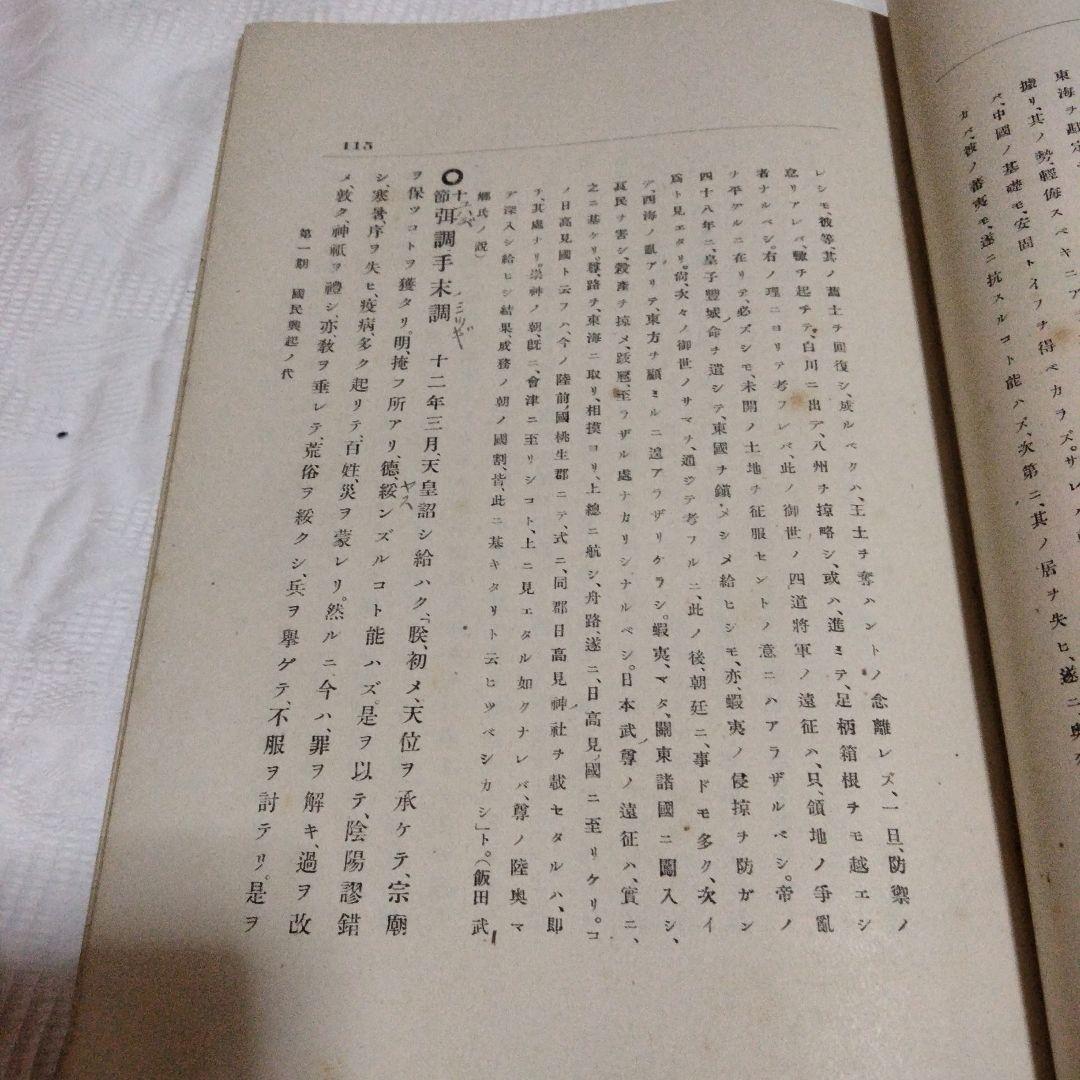 東海ヲ
據リ、其ノ勢、輕侮スベキニ
バ、中國ノ基礎モ、安固トイフヲ得ベカラズ。サレバ
カバ、彼ノ蕃夷モ、遂ニ抗スルコト能ハズ、次第ニ、其ノ居ヲ失ヒ、遂ニ奥
115
レシモ、彼等、其ノ舊土ヲ回復シ、成ルベクハ、王土ヲ奪ハントノ念離レズ、一旦、防禦ノ
怠リアレバ、輙チ起チテ、白川ニ出デ、八州ヲ掠略シ、或ハ、進ミテ、足柄箱根ヲモ越エシ
者ナルベシ。右ノ理ニヨリテ考フレバ、此ノ御世ノ四道將軍ノ遠征ハ、只、領地ノ爭亂
ヲ平グルニ在リテ、必ズシモ、未開ノ土地ヲ征服セントノ意ニハアラザルベシ。帝ノ
四十八年ニ、皇子豐城命ヲ遣シテ、東國ヲ鎭メシメ給ヒシモ、亦、蝦夷ノ侵掠ヲ防ガン
爲ト見エタリ。尙、次々ノ御世ノサマヲ、通ジテ考フルニ、此ノ後、朝廷ニ、事ドモ多ク、次イ
デ、西海ノ亂アリテ、東方ヲ顧ミルニ遑アラザリケラシ。蝦夷、マタ、關東諸國ニ闖入シ、
良民ヲ害シ、穀產ヲ掠メ、跋扈、至ラザル處ナカリシナルベシ。日本武尊ノ遠征ハ、實ニ、
之ニ基ケリ。尊、路ヲ、東海ニ取リ、相摸ヨリ、上總ニ航シ、舟路、遂ニ、日高見ノ國ニ至リケリ。コ
ノ日高見國ト云フハ、今ノ陸前ノ國桃生郡ニテ、式ニ、同郡日高見神社ヲ載セタルハ、即
チ、其處ナリ。崇神ノ朝、旣ニ、會津ニ至リシコト、上ニ見エタル如クナレバ、尊ノ陸奥マ
デ深入シ給ヒシ結果、成務ノ朝ノ國割、皆、此ニ基キタリト云ヒツベシカシ」ト。(飯田武
鄕氏ノ説)
十節 弭調手末調 十二年三月、天皇詔シ給ハク、「朕、初メ、天位ヲ承ケテ、宗廟
ユハズ
ミツギ
ヲ保ツコトヲ獲タリ。明、掩フ所アリ、德、綏ンズルコト能ハズ。是ヲ以テ、陰陽謬錯
ヤス
シ、寒暑序ヲ失ヒ、疫病、多ク起リテ、百姓、災ヲ蒙レリ。然ルニ今ハ、罪ヲ解キ、過ヲ改
メ、敦ク、神祇ヲ禮シ、亦、敎ヲ垂レテ、荒俗ヲ綏クシ、兵ヲ擧ゲテ、不服ヲ討テリ。是ヲ
第一期 國民興起ノ代